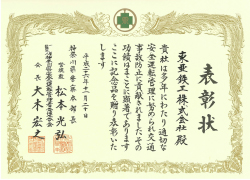 表彰状
東亜鉄工株式会社殿
貴社は多年にわたり適切な
安全運転管理に努められ交通
事故防止に貢献されましたその
功績はまことに顕著であります
ここに記念品を贈り表彰いた
します
平成二十六年十一月二十日
神奈川県警察本部長
警視監 松本光弘
会長 大木宏之